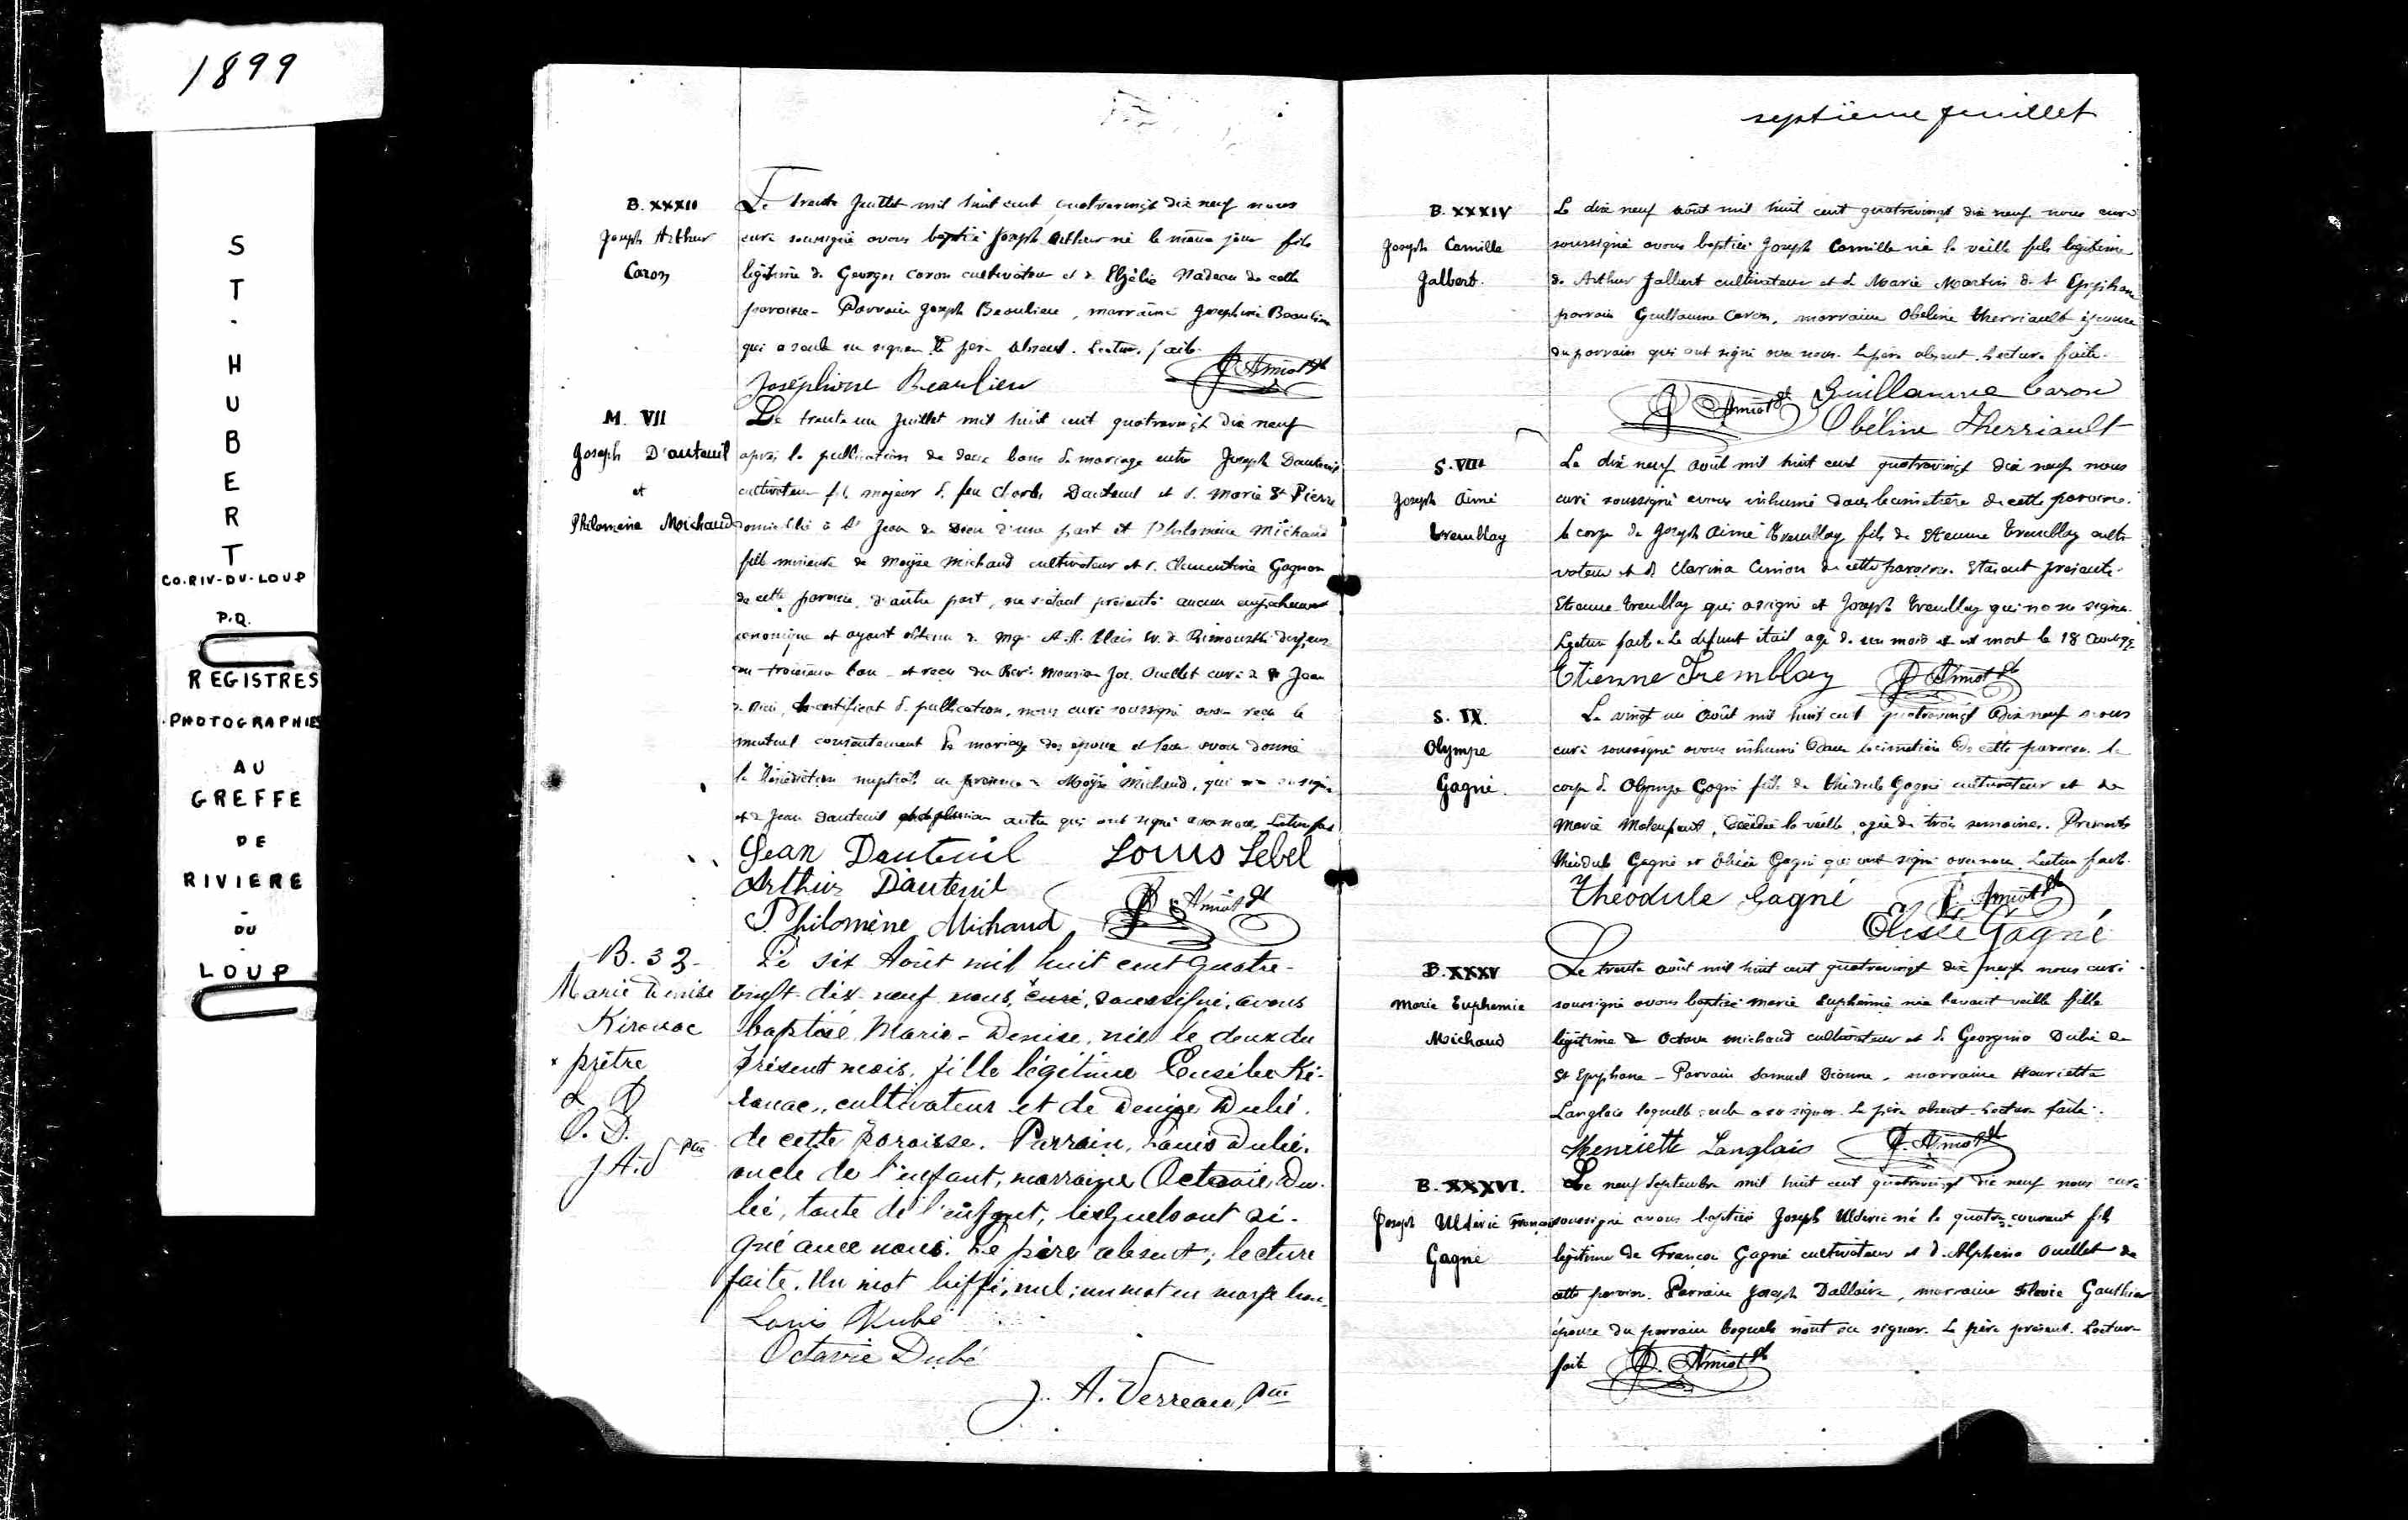 1899
ST. HUBERT
CO. RIV-DU-LOUP
P.Q.
REGISTRES
PHOTOGRAPHIES
AU
GREFFE
DE
RIVIERE
-
DU
-
LOUP
B. XXXII
Joseph Arthur
Caron
Le trente Juillet mil huit cent quatrevingt dix neuf nous
curé soussigné avons baptisé Joseph Arthur né le même jour fils
légitime de Georges Caron cultivateur et de Elzélie Nadeau de cette
paroisse - Parrain Joseph Beaulieu, marraine Josephine Beaulieu
qui a seule su signer. Le père absent. Lecture faite.
Joséphine Beaulieu Amiot Pt
M. VII
Joseph D'auteuil
et
Philomène Moichaud
Le trente un Juillet mil huit cent quatrevingt dix neuf
après la publication de deux bans de mariage entre Joseph Dauteuil
cultivateur fils majeur de feu Charles Dauteuil et de Marie St Pierre
domicilié à St Jean de Dieu d'une part et Philomène Michaud
fille mineure de Moÿse Michaud cultivateur et de Clementine Gagnon
de cette paroisse, d'autre part, ne s'étant présenté aucun empêchement
canonique et ayant obtenu de Mgr A. A. Blais Ev. de Rimouski dispense
du troisième ban et reçu du Rev. Monsieur Jos. Ouellet curé de St Jean
de Dieu, certificat de publication, nous curé soussigné avons reçu le
mutuel consentement de mariage des époux et leur avons donné
la bénédiction nuptiale en présence de Moÿse Michaud, qui
et de Jean Dauteuil et de plusieurs autres qui ont signé avec nous. Lecture faite
Jean Dauteuil Louis Lebel
Arthur Dauteuil
Philomène Michaud Amiot Pt
B. 33-
Marie Denise
Kirouac
x prêtre
L. D
O. D.
J.A.V Ptre
Le six Août mil huit cent quatre-
vingt-dix-neuf nous, curé, soussigné, avons
baptisé Marie-Denise, née le deux du
présent mois, fille légitime Eusèbe Ki-
rouac, cultivateur et de Denise Dubé.
de cette paroisse. Parrain, Louis Dubé,
oncle de l'enfant, marraine Octavie Du-
bé, tante de l'enfant, lesquels ont si-
gné avec nous. Le père absent; lecture
faite. Un mot biffé, nul; un mot en marge bon.
Louis Dubé
Octavie Dubé
J. A. Verreau, Ptre
septième feuillet
B. XXXIV
Joseph Camille
Jalbert.
Le dix neuf août mil huit cent quatrevingt dix neuf nous curé
soussigné avons baptisé Joseph Camille né la veille fils légitime
de Arthur Jalbert cultivateur et de Marie Martin de St Epiphane
parrain Guillaume Caron, marraine Obeline Therriault épouse
du parrain qui ont signé avec nous. Le père absent. Lecture faite.
Amiot Pt Guillaume Caron
Obéline Therriault
S. VIII
Joseph Aimé
Tremblay
Le dix neuf août mil huit cent quatrevingt dix neuf nous
curé soussigné avons inhumé dans le cimetière de cette paroisse
le corps de Joseph Aimé Tremblay fils de Etienne Tremblay culti
vateur et de Clarina de cette paroisse. Etaient présents
Etienne Tremblay qui a signé et Joseph Tremblay qui n'a su signer.
Lecture faite. Le défunt était agé de un mois et est mort le 18 Août 99
Etienne Tremblay Amiot Pt
S. IX.
Olympe
Gagné.
Le vingt un août mil huit cent quatrevingt dix neuf nous
curé soussigné avons inhumé dans le cimetière de cette paroisse le
corps de Olympe Gagné fille de Théodule Gagné cultivateur et de
Marie Malenfant, décédée la veille, agée de trois semaines. Présents
Théodule Gagné et Elisée Gagné qui ont signé avec nous. Lecture faite.
Théodule Gagné Amiot Pt
Elisée Gagné
B. XXXV
Marie Euphemie
Michaud
Le trente août mil huit cent quatrevingt dix neuf nous curé
soussigné avons baptisé Marie Euphémie née l'avant veille fille
légitime de Octave Michaud cultivateur et de Georgina Dubé de
St Epiphane - Parrain Samuel Dionne, marraine Henriette
Langlais laquelle seule a su signer. Le père absent. Lecture faite.
Henriette Langlais Amiot Pt
B. XXXVI.
Joseph Ulderic François
Gagné
Le neuf Septembre mil huit cent quatrevingt dix neuf nous curé
soussigné avons baptisé Joseph Ulderic né le quatre courant fils
légitime de François Gagné cultivateur et d'Alphena Ouellet de
cette paroisse. Parrain Joseph Dallaire, marraine Flavie Gauthier
épouse du parrain lesquels n'ont su signer. Le père présent. Lecture
faite Amiot Pt